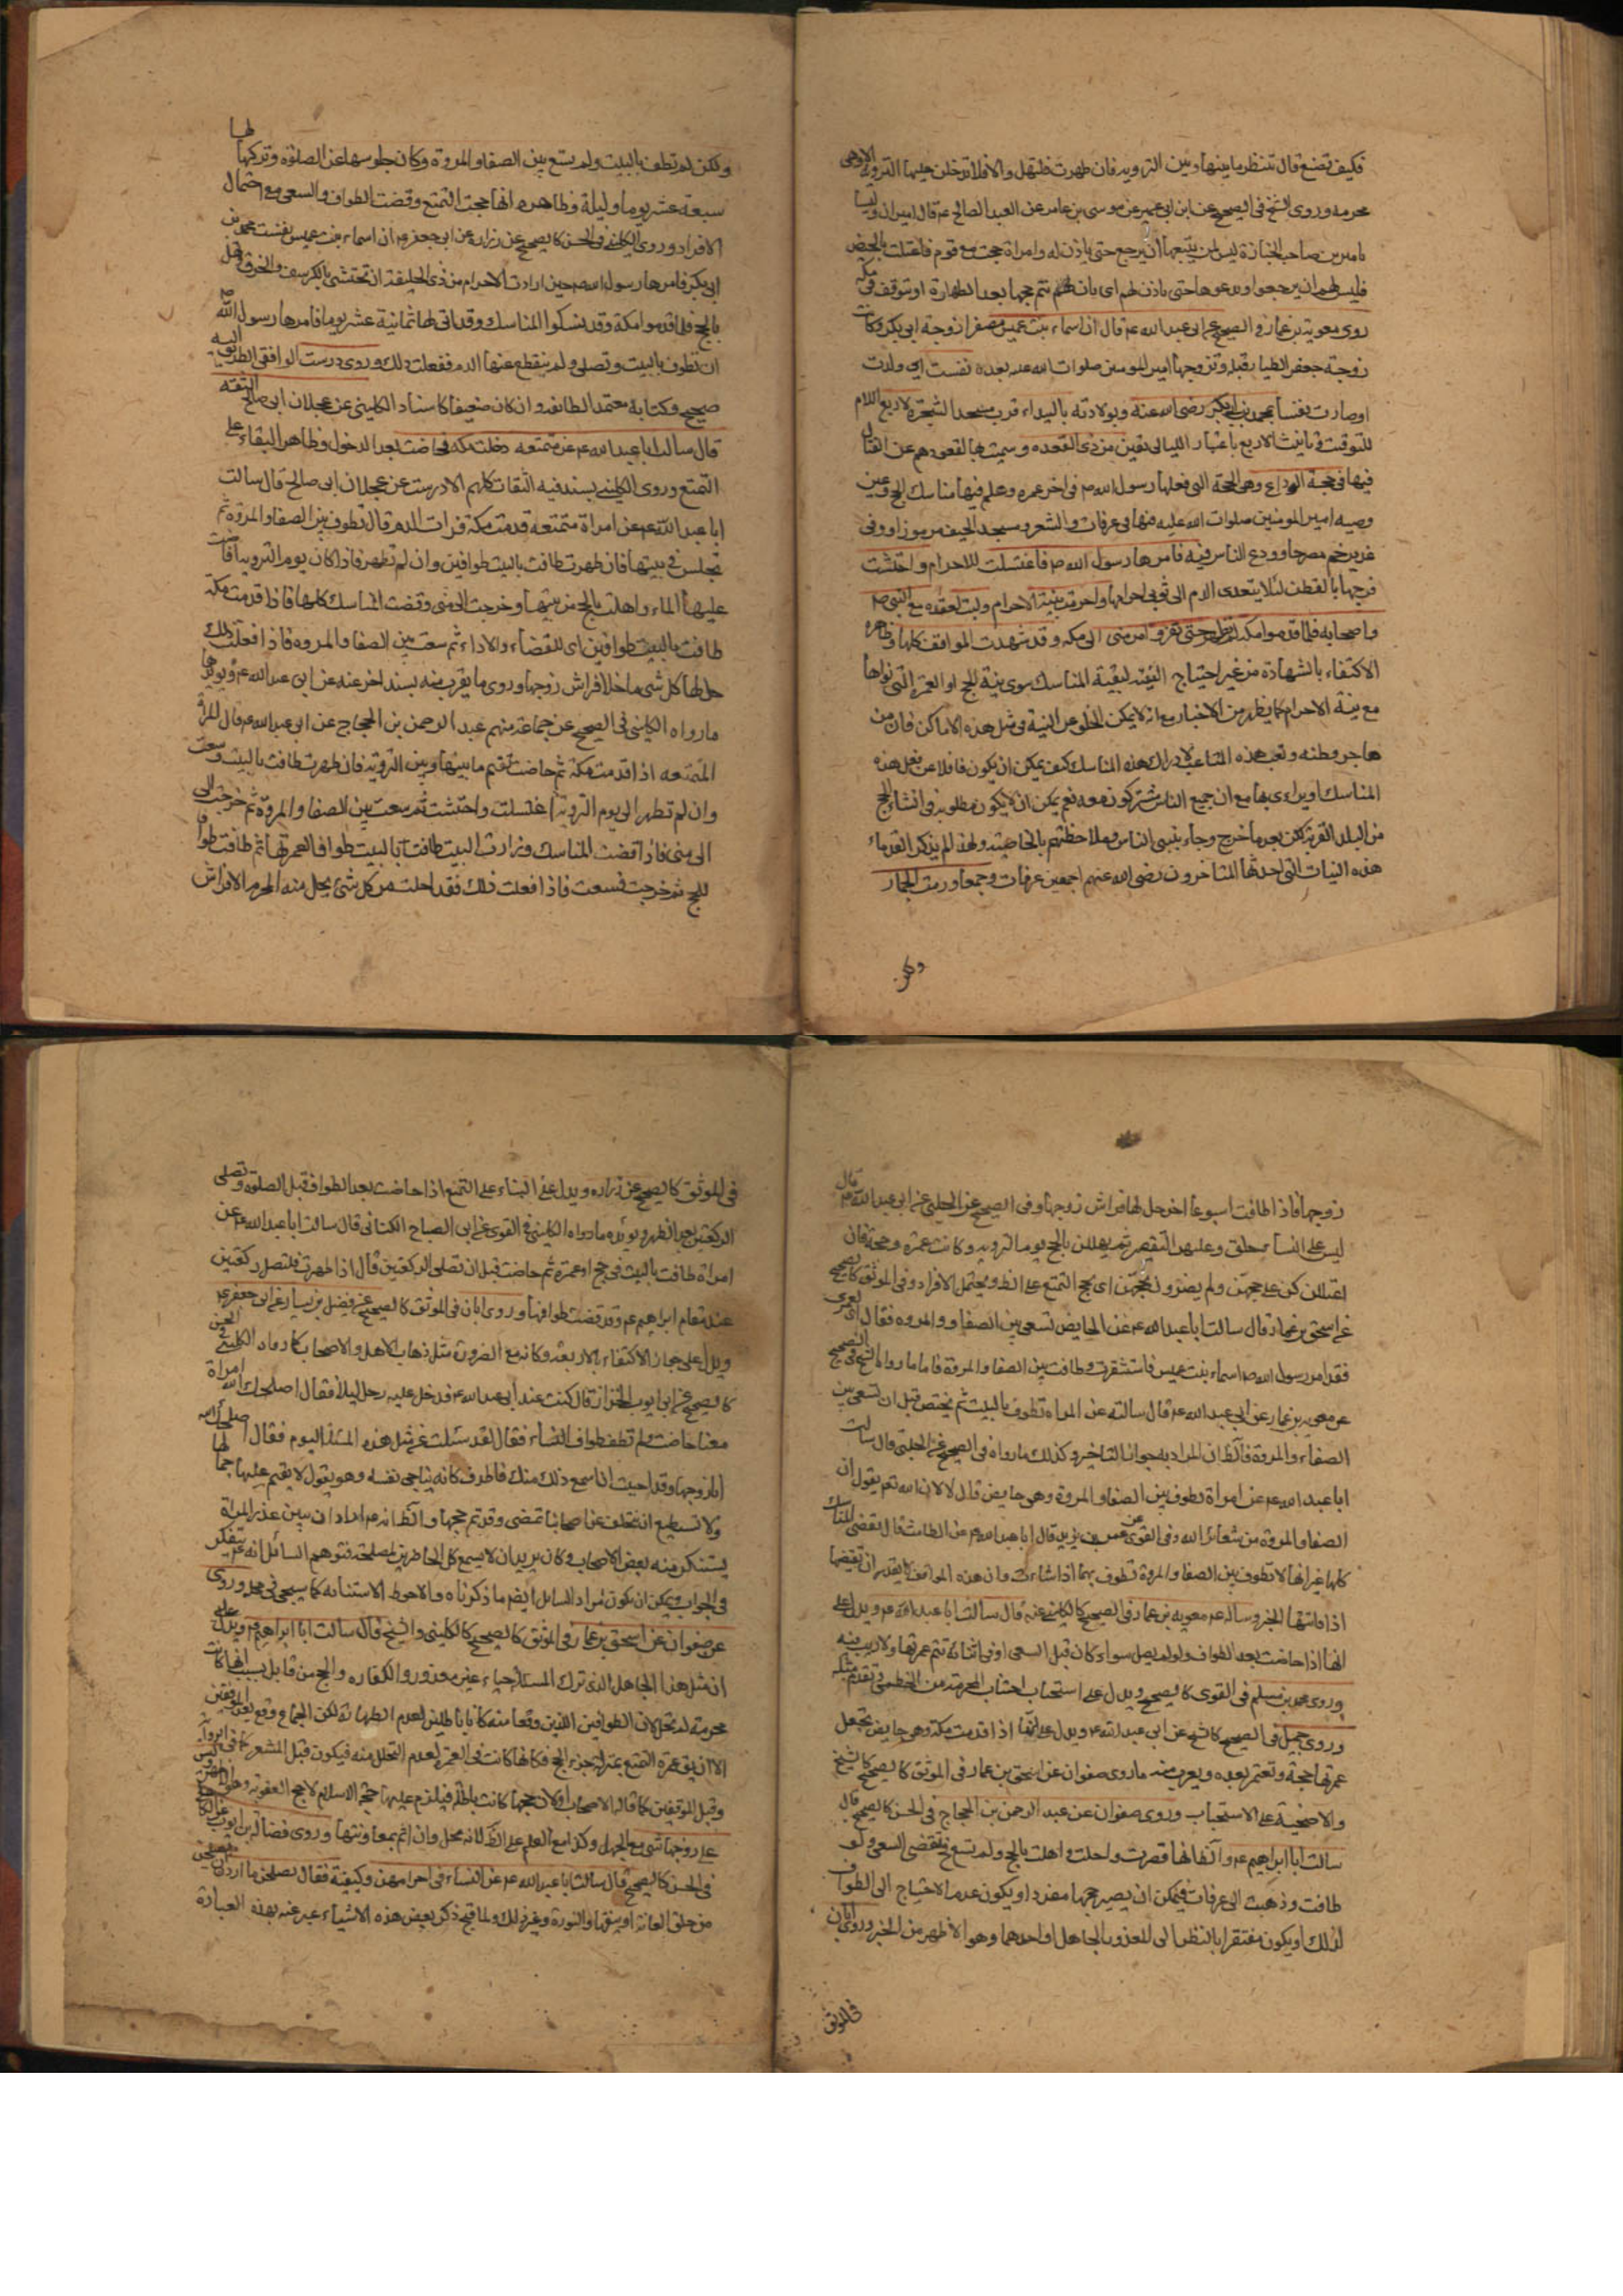 فكيف تصنع قال تنتظر ما بينها وبين التروية فان طهرت فلتهل والا فلا تدخلن عليها التروية الا وهي
محرمة وروى الشيخ في الصحيح عن ابن ابي عمير عن موسى بن عامر عن العبد الصالح ع قال اميران وليسا
باميرين صاحب الجنازة ليس لمن يتبعها ان يرجع حتى ياذن له وامراة حجت مع قوم فاعتلت بالحيض
فليس لهم ان يرجعوا ويدعوها حتى ياذن لهم اى بان تتم حجها بعد الطهارة او تتوقف في مكة
روى معوية بن عمار في الصحيح عن ابى عبد الله ع قال ان اسماء بنت عميس مصغرا زوجة ابى بكر وكانت
زوجة جعفر الطيار قبله وتزوجها امير المومنين صلوات الله عليه بعده نفست اى ولدت
اوصارت نفسا بمحمد بن ابى بكر رضى الله عنه وبولادته بالبيداء قرب مسجد الشجرة لاربع اللام
للتوقيت وتانيث الاربع باعتبار الليالى بقين من ذى القعده وسميت بها لقعودهم عن القتال
فيها في حجة الوداع وهى الحجة التى فعلها رسول الله ص في اخر عمره وعلم فيها مناسك الحج وعين
وصيه امير المومنين صلوات الله عليه فيها في عرفات والمشعر ومسجد الخيف مرموزا وفى
غدير خم مصرحا وودع الناس فيه فامرها رسول الله ص فاغتسلت للاحرام واحتشت
فرجها بالقطن لئلا يتعدى الدم الى ثوبى احرامها واحرمت بنية الاحرام ولبت لعقده مع النبى ص
واصحابه فلما قدموا مكة لم تطهر حتى نفروا من منى الى مكه وقد شهدت المواقف كلها وظاهره
الاكتفاء بالشهادة من غير احتياج النية لبقية المناسك سوى نية الحج او العمرة التى نواها
مع نية الاحرام كما يظهر من الاخبار مع انه لا يمكن الخلو عن النية فى مثل هذه الاماكن فان من
هاجر وطنه وتعب هذه المتاعب لادراك هذه المناسك كيف يمكن ان يكون غافلا عن فعل هذه
المناسك او يرائى بها مع ان جميع الناس مشتركون معه نعم يمكن ان لا يكون مطلوبه فى انشاء الحج
من البلد القربة لكن بعد ما خرج وجاء ينسى الناس وملاحظتهم بالخاصية ولهذا لم يذكر القدماء
هذه النيات التى احدثها المتاخرون رضى الله عنهم اجمعين عرفات وجمعا ورمت الجمار
ولكن
ولكن لم تطف بالبيت ولم تسع بين الصفا والمروة وكان جلوسها عن الصلوة وتركها لها
سبعة عشر يوما وليلة وظاهره انها حجت التمتع وقضت الطواف والسعى مع احتمال
الافراد وروى الكلينى فى الحسن كالصحيح عن زرارة عن ابى جعفر ع ان اسماء بنت عميس نفست بمحمد بن
ابى بكر فامرها رسول الله ص حين ارادت الاحرام من ذى الحليفة ان تحتشى بالكرسف والخرق وتهل
بالحج فلما قدموا مكة وقد نسكوا المناسك وقد اتى لها ثمانية عشر يوما فامرها رسول الله ص
ان تطوف بالبيت وتصلى ولم ينقطع عنها الدم ففعلت ذلك وروى درست الواقفى الطريق اليه
صحيح وكتابه معتمد الطائفة وان كان ضعيفا كاسناد الكلينى عن عجلان ابى صالح الثقة
قال سالت ابا عبد الله ع عن متمتعه دخلت مكه فحاضت بعد الدخول وظاهر البقاء على
التمتع وروى الكلينى بسند فيه الثقات كلهم الا درست عن عجلان ابى صالح قال سالت
ابا عبد الله ع عن امراة متمتعه قدمت مكة فرات الدم قال تطوف بين الصفا والمروة ثم
تجلس فى بيتها فان طهرت طافت بالبيت طوافين وان لم تطهر فاذا كان يوم التروية افاضت
عليها الماء واهلت بالحج من بيتها وخرجت الى منى وقضت المناسك كلها فاذا قدمت مكة
طافت بالبيت طوافين اى للقضاء والاداء ثم سعت بين الصفا والمروه فاذا فعلت ذلك
حل لها كل شى ما خلا فراش زوجها وروى ما يقرب منه بسند اخر عنه عن ابى عبد الله ع ويويدها
ما رواه الكلينى فى الصحيح عن جماعة منهم عبد الرحمن بن الحجاج عن ابى عبد الله ع قال المراة
المتمتعه اذا قدمت مكة ثم حاضت تقيم ما بينها وبين التروية فان طهرت طافت بالبيت وسعت
وان لم تطهر الى يوم التروية اغتسلت واحتشت ثم سعت بين الصفا والمروة ثم خرجت الى
الى منى فاذا قضت المناسك وزارت البيت طافت بالبيت طوافا لعمرتها ثم طافت طوافا
للحج ثم خرجت فسعت فاذا فعلت ذلك فقد احلت من كل شئ يحل منه المحرم الا فراش
زوجها فاذا طافت اسبوعا اخر حل لها فراش زوجها وفى الصحيح عن الحلبى عن ابى عبد الله ع قال
ليس على النساء حلق وعليهن التقصير ثم يهللن بالحج يوم التروية وكانت عمرة وحجة فان
اعتللن كن على حجهن ولم يضررن بحجهن اى حج التمتع على الظ ويحتمل الافراد وفى الموثق كالصحيح
عن اسحق بن عمار قال سالت ابا عبد الله ع عن الحايض تسعى بين الصفا والمروه فقال اى لعمرى
فقد امر رسول الله ص اسماء بنت عميس فاستثفرت وطافت بين الصفا والمروة فاما ما رواه الشيخ فى الصحيح
عن معوية بن عمار عن ابى عبد الله ع قال سالته عن المراة تطوف بالبيت ثم تحيض قبل ان تسعى بين
الصفا والمروة فالظ ان المراد به جواز التاخير وكذلك ما رواه فى الصحيح عن الحلبى قال سالت
ابا عبد الله ع عن امراة تطوف بين الصفا والمروة وهى حايض قال لا لان الله تعم يقول ان
الصفا والمروة من شعائر الله وفى القوى عن عمر بن يزيد قال ابا عبد الله ع عن الطامث قال تقضى المناسك
كلها غير انها لا تطوف بين الصفا والمروة تطوف بهما اذا شاءت وان هذه المواقف لا يقدر ان تقضيها
اذا فاتتها الخبر وساله ع معويه بن عمار فى الصحيح كالكلينى عنه قال سالت ابا عبد الله ع ويدل على
انها اذا حاضت بعد الطواف ولو لم يصل سواء كان قبل السعى او فى اثنائه تتم عمرتها ولا ريب فيه
وروى محمد بن مسلم فى القوى كالصحيح ويدل على استحباب اجتناب المحرمة من الخطمى وتقدم مثله
وروى جميل فى الصحيح كالشيخ عن ابى عبد الله ع ويدل على انها اذا قدمت مكة وهى حايض تجعل
عمرتها حجة وتعتمر بعده ويقرب منه ما روى صفوان عن اسحق بن عمار فى الموثق كالصحيح كالشيخ
والاضحية على الاستحباب وروى صفوان عن عبد الرحمن بن الحجاج فى الحسن كالصحيح قال
سالت ابا ابراهيم ع والظ انها قصرت واحلت واهلت بالحج ولم تسع فتقضى السعى ولو
طافت وذهبت الى عرفات فيمكن ان يصير حجها مفردا ويكون عدم الاحتياج الى الطواف
لذلك او يكون مغتفرا بالنظر الى المعذور الجاهل او احدهما وهو الاظهر من الخبر وروى ابان
فى الموثق
فى الموثق كالصحيح عن زراره ويدل على البناء على التمتع اذا حاضت بعد الطواف قبل الصلوة وتصلى
الركعتين بعد الطهر ويؤيده ما رواه الكلينى فى القوى عن ابى الصباح الكنانى قال سالت ابا عبد الله ع عن
امراة طافت بالبيت فى حج او عمرة ثم حاضت قبل ان تصلى الركعتين قال اذا طهرت فلتصل ركعتين
عند مقام ابراهيم ع وقد قضت طوافها وروى ابان فى الموثق كالصحيح عن فضيل بن يسار عن ابى جعفر ع
ويدل على جواز الاكتفاء بالاربعة وكانه مع الضرورة مثل ذهاب الاهل والاصحاب كما رواه الكلينى فى الحسن
كالصحيح عن ابى ايوب الخزاز قال كنت عند ابى عبد الله ع فدخل عليه رجل ليلا فقال اصلحك الله امراة
معنا حاضت ولم تطف طواف النساء فقال لقد سئلت عن مثل هذه المسئلة اليوم فقال اصلحك الله
انا زوجها وقد احببت ان اسمع ذلك منك فاطرق كانه يناجى نفسه وهو يقول لا يقيم عليها جمالها
ولا تستطيع ان تتخلف عن اصحابها تمضى وقد تم حجها والظ انه ع اراد ان يبين عذر المراة
يستنكر منه بعض الاصحاب وكان يريد ان لا يسمع كل الحاضرين لمصلحة فتوهم السائل انه ع يتفكر
فى الجواب ويمكن ان يكون مراد السائل ايضم ما ذكرناه والاحوط الاستنابه كما سيجئ فى محله وروى
عن صفوان عن اسحق بن عمار فى الموثق كالصحيح كالكلينى والشيخ قال سالت ابا ابراهيم ع ويدل على
ان مثل هذا الجاهل الذى ترك المسئلة حياء غير معذور والكفاره والحج من قابل بسبب انها كانت
محرمة لم تحل لان الطوافين اللذين وقعا منه كانا باطلين لعدم الطهارة لكن الجماع وقع بعد الموقفين
الا ان يق عمرة التمتع بمنزلة جزء الحج فكانها كانت فى العمرة لعدم التحلل منه فيكون قبل المشعر
وقبل الموقفين كما قاله الاصحاب او لان حجها كانت باطلة فيلزم عليها حجة الاسلام لا حج العقوبة
على زوجها شئ مع الجهل وكذا مع العلم على الظ لانه محل وان اثم بمعاونتها وروى فضالة بن ايوب
فى الحسن كالصحيح قال سالت ابا عبد الله ع عن النساء فى احرامهن وكيفيته فقال يصلحن ما اردن
من حلق العانة او نتفها والنورة وغير ذلك ولما قبح ذكر بعض هذه الاشياء عبر عنه بهذه العبارة